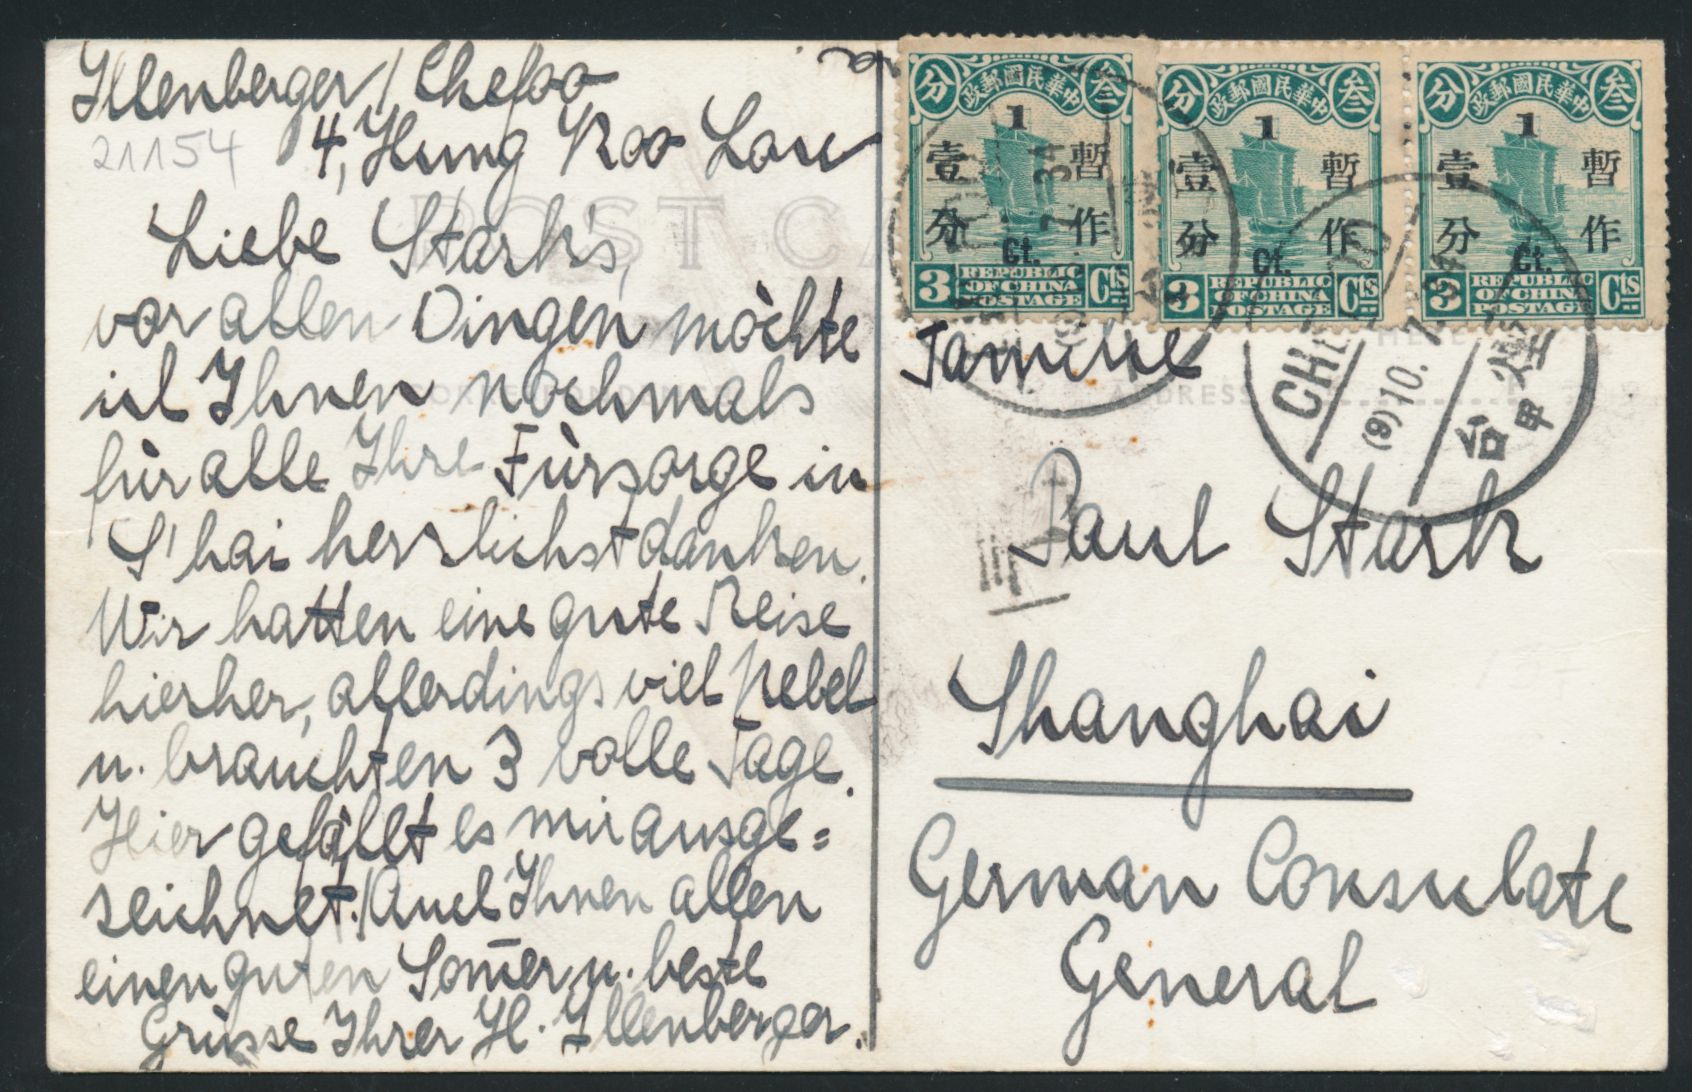 Illenberger / Chefoo
21154
4, Hung Koo Lou
Liebe Stark's,
vor allen Dingen möchte
ich Ihnen nochmals
für alle Ihre Fürsorge in
S'hai herzlichst danken.
Wir hatten eine gute Reise
hierher, allerdings viel Nebel
u. brauchten 3 volle Tage.
Hier gefällt es mir ausge=
zeichnet. Auch Ihnen allen
einen guten Som̅er u. beste
Grüsse Ihrer H. Illenberger.
POST CA
CORRESPONDENCE
ADDRESS
HERE
政郵國民華中
分 叁
1
壹分 暫作
Ct.
3 REPUBLIC OF CHINA POSTAGE Cts
政郵國民華中
分 叁
1
壹分 暫作
Ct.
3 REPUBLIC OF CHINA POSTAGE Cts
政郵國民華中
分 叁
1
壹分 暫作
Ct.
3 REPUBLIC OF CHINA POSTAGE Cts
7. 34
(9) 10. 7.
台 甲
Familie
Paul Stark
Shanghai
German Consulate
General